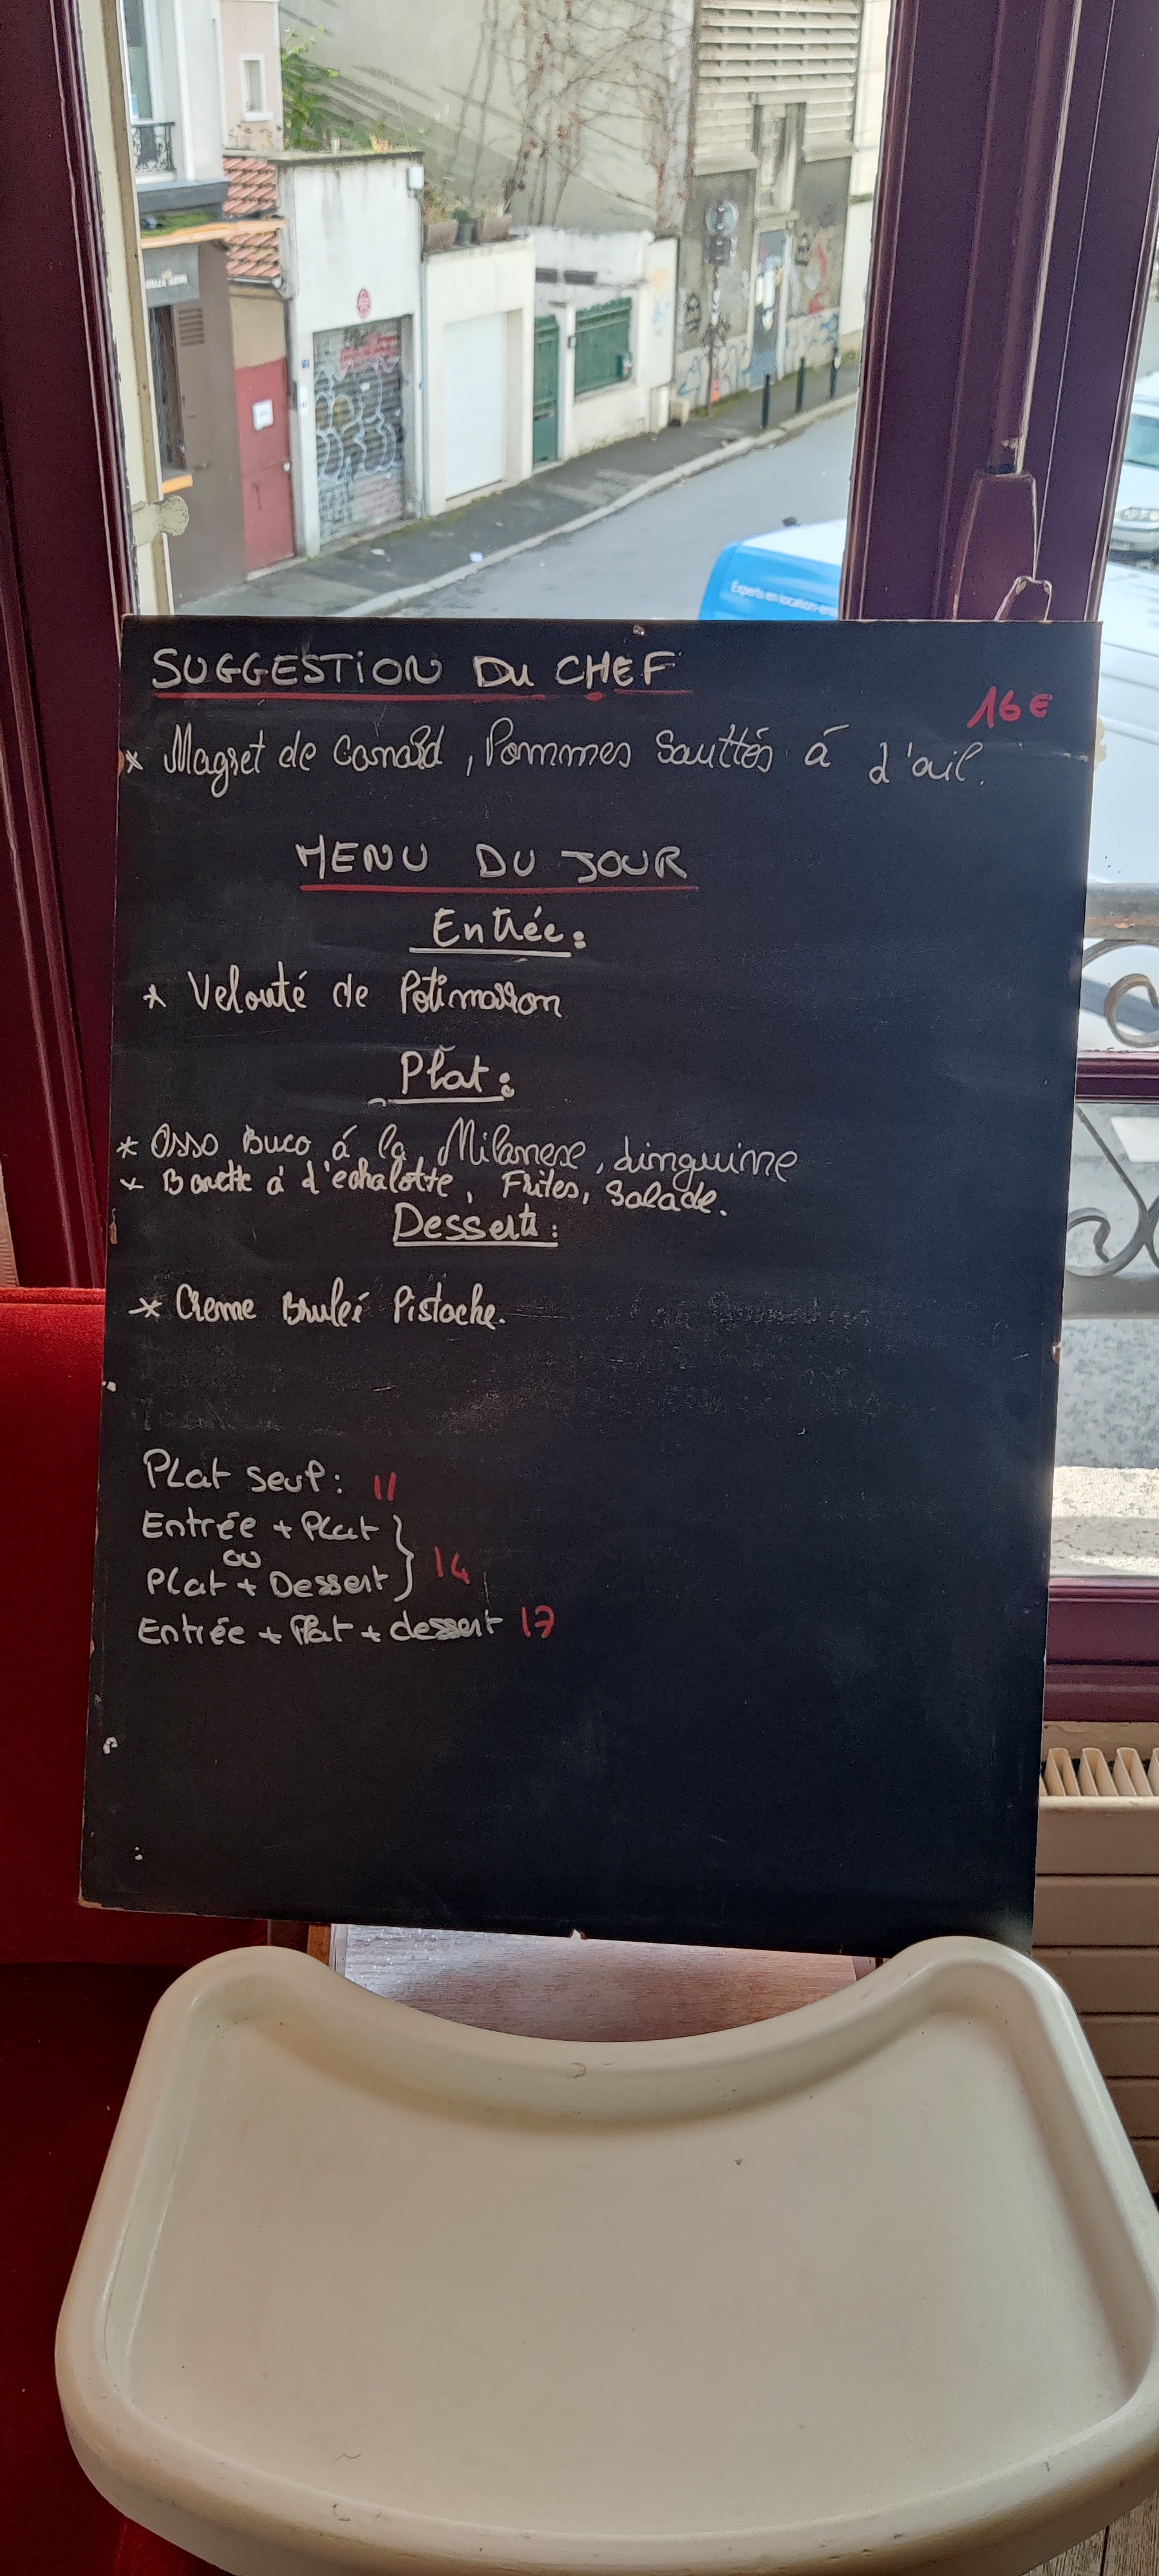 SUGGESTION DU CHEF
16€
* Magret de Canard, Pommes Sauttés à l'ail.
MENU DU JOUR
Entrée:
* Velouté de Potimarron
Plat:
* Osso Buco á la Milanese, Linguine
* Bavette á l'echalotte, Frites, Salade.
Dessert:
* Creme Brulée Pistache.
Plat seul: 11
Entrée + Plat
ou
14
Plat + Dessert
Entrée + Plat + dessert 17
Experts en location